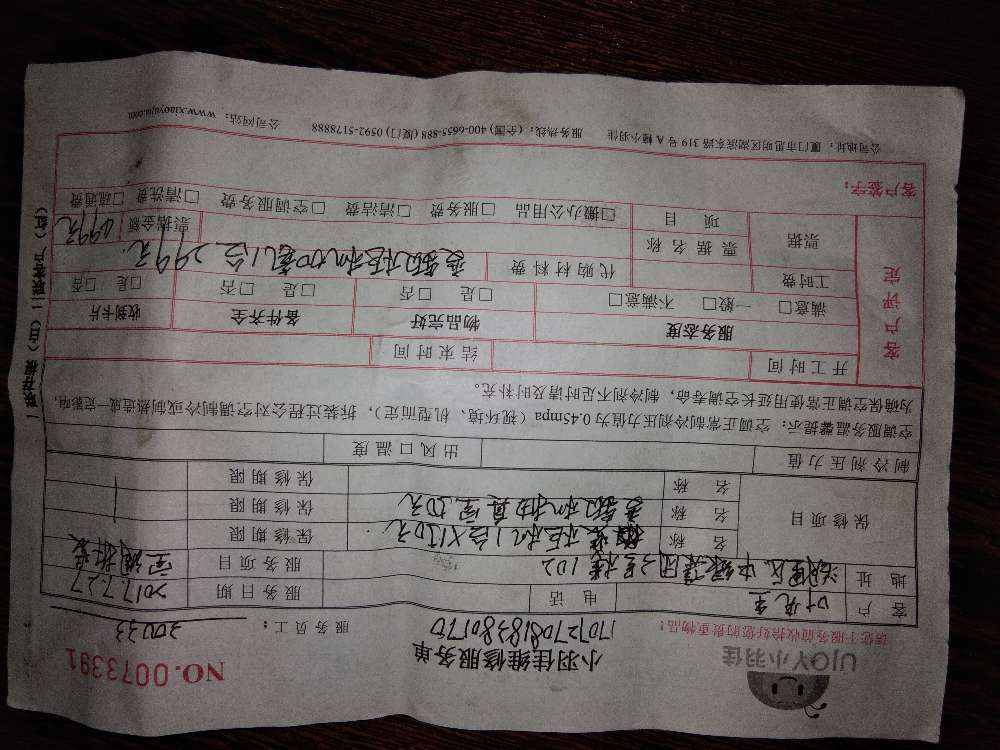 UJOY小羽佳
小羽佳维修服务单
NO.0073391
请您于服务前收拾好您的贵重物品!
1707270818380170
服务员工:
30033
客户 叶先生 电话 服务日期 2017.7.27
地址 湖里区中绿集团2号楼102 服务项目 空调拆装
保修项目
名称 柜机1台×150元 保修期限
名称 变频机抽真空50元 保修期限
名称 保修期限
制冷剂压力值 出风口温度
空调服务温馨提示:空调正常制冷剂压力值为0.45mpa(视环境、机型而定),拆装过程会对空调制冷或制热造成一定影响,
为确保空调正常使用延长空调寿命,制冷剂不足时请及时补充。
客户评定
开工时间 结束时间
服务态度 物品完好 备件齐全 收到卡片
满意□ 一般□ 不满意□ □是 □否 □是 □否 □是 □否
工时费 代购材料费 变频柜机加氟1台299元
票据 票据名称 票据金额 499元
项目 □搬办公用品 □服务费 □清洁费 □空调服务费 □清洗费 □疏通费
客户签字:
公司地址:厦门市思明区湖滨东路319号A幢小羽佳 服务热线:(全国)400-6655-888(厦门)0592-5178888 公司网站:www.xiaoyujia.com
一联存根(白)二联客户(红)